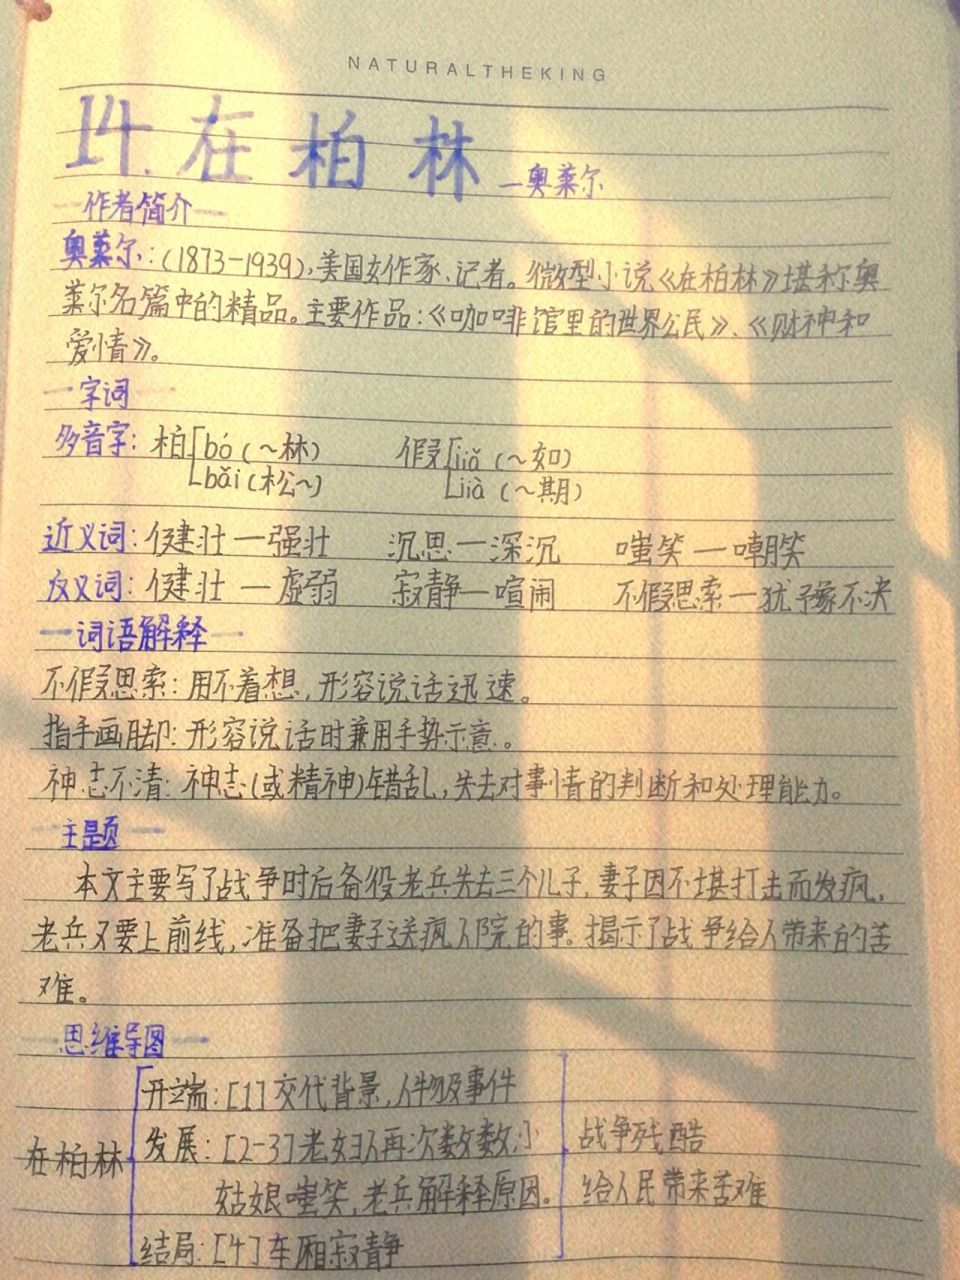 NATURALTHEKING
14.在柏林 —奥莱尔
作者简介
奥莱尔:(1873-1939),美国女作家、记者。微型小说《在柏林》堪称奥
莱尔名篇中的精品。主要作品:《咖啡馆里的世界公民》、《财神和
爱情》。
一字词
多音字: 柏 bó (~林) 假 jiǎ (~如)
bǎi (松~) jià (~期)
近义词: 健壮—强壮 沉思—深沉 嗤笑—嘲笑
反义词: 健壮—虚弱 寂静—喧闹 不假思索—犹予豫不决
一词语解释—
不假思索: 用不着想,形容说话迅速。
指手画脚: 形容说话时兼用手势示意。
神志不清: 神志(或精神)错乱,失去对事情的判断和处理能力。
主题
本文主要写了战争时后备役老兵失去三个儿子,妻子因不堪打击而发疯,
老兵又要上前线,准备把妻子送疯人院的事。揭示了战争给人带来的苦
难。
思维导图
开端: [1] 交代背景,人物及事件
发展: [2-3] 老妇人再次数数,小
在柏林
姑娘嗤笑,老兵解释原因。
结局: [4] 车厢寂静
战争残酷
给人民带来苦难